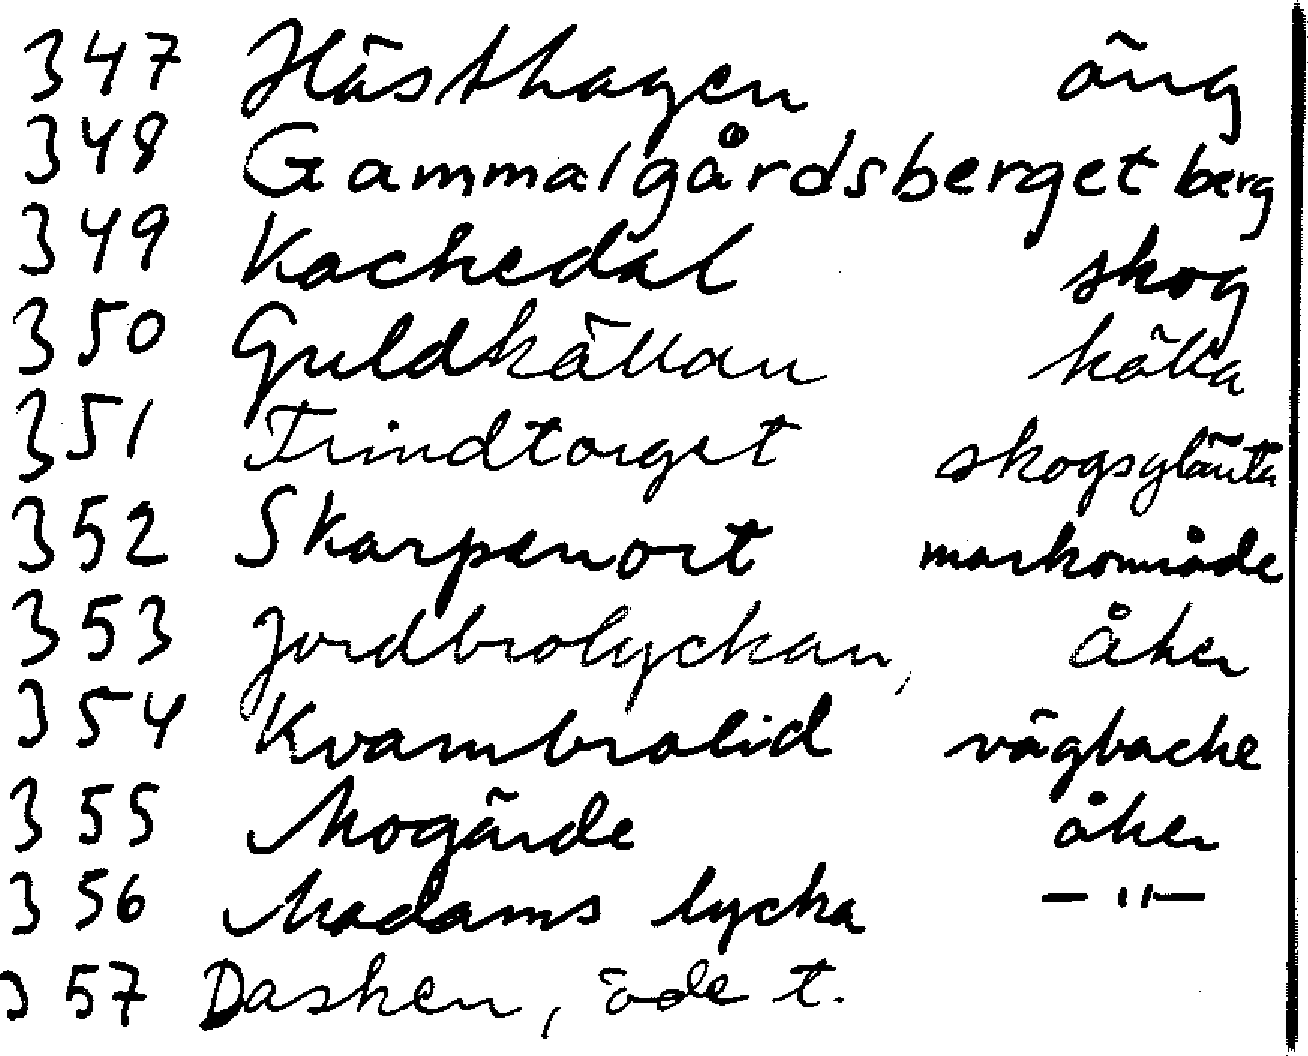 347 Hästhagen äng
348 Gammalgårdsberget berg
349 Kachedal skog
350 Guldkällan källa
351 Trindtorget skogsglänta
352 Skarpenort markområde
353 Jordbrolyckan, åker
354 Kvambrolid vägbacke
355 Mogärde åker
356 Madams lycka —"—
357 Dasken, öde t.